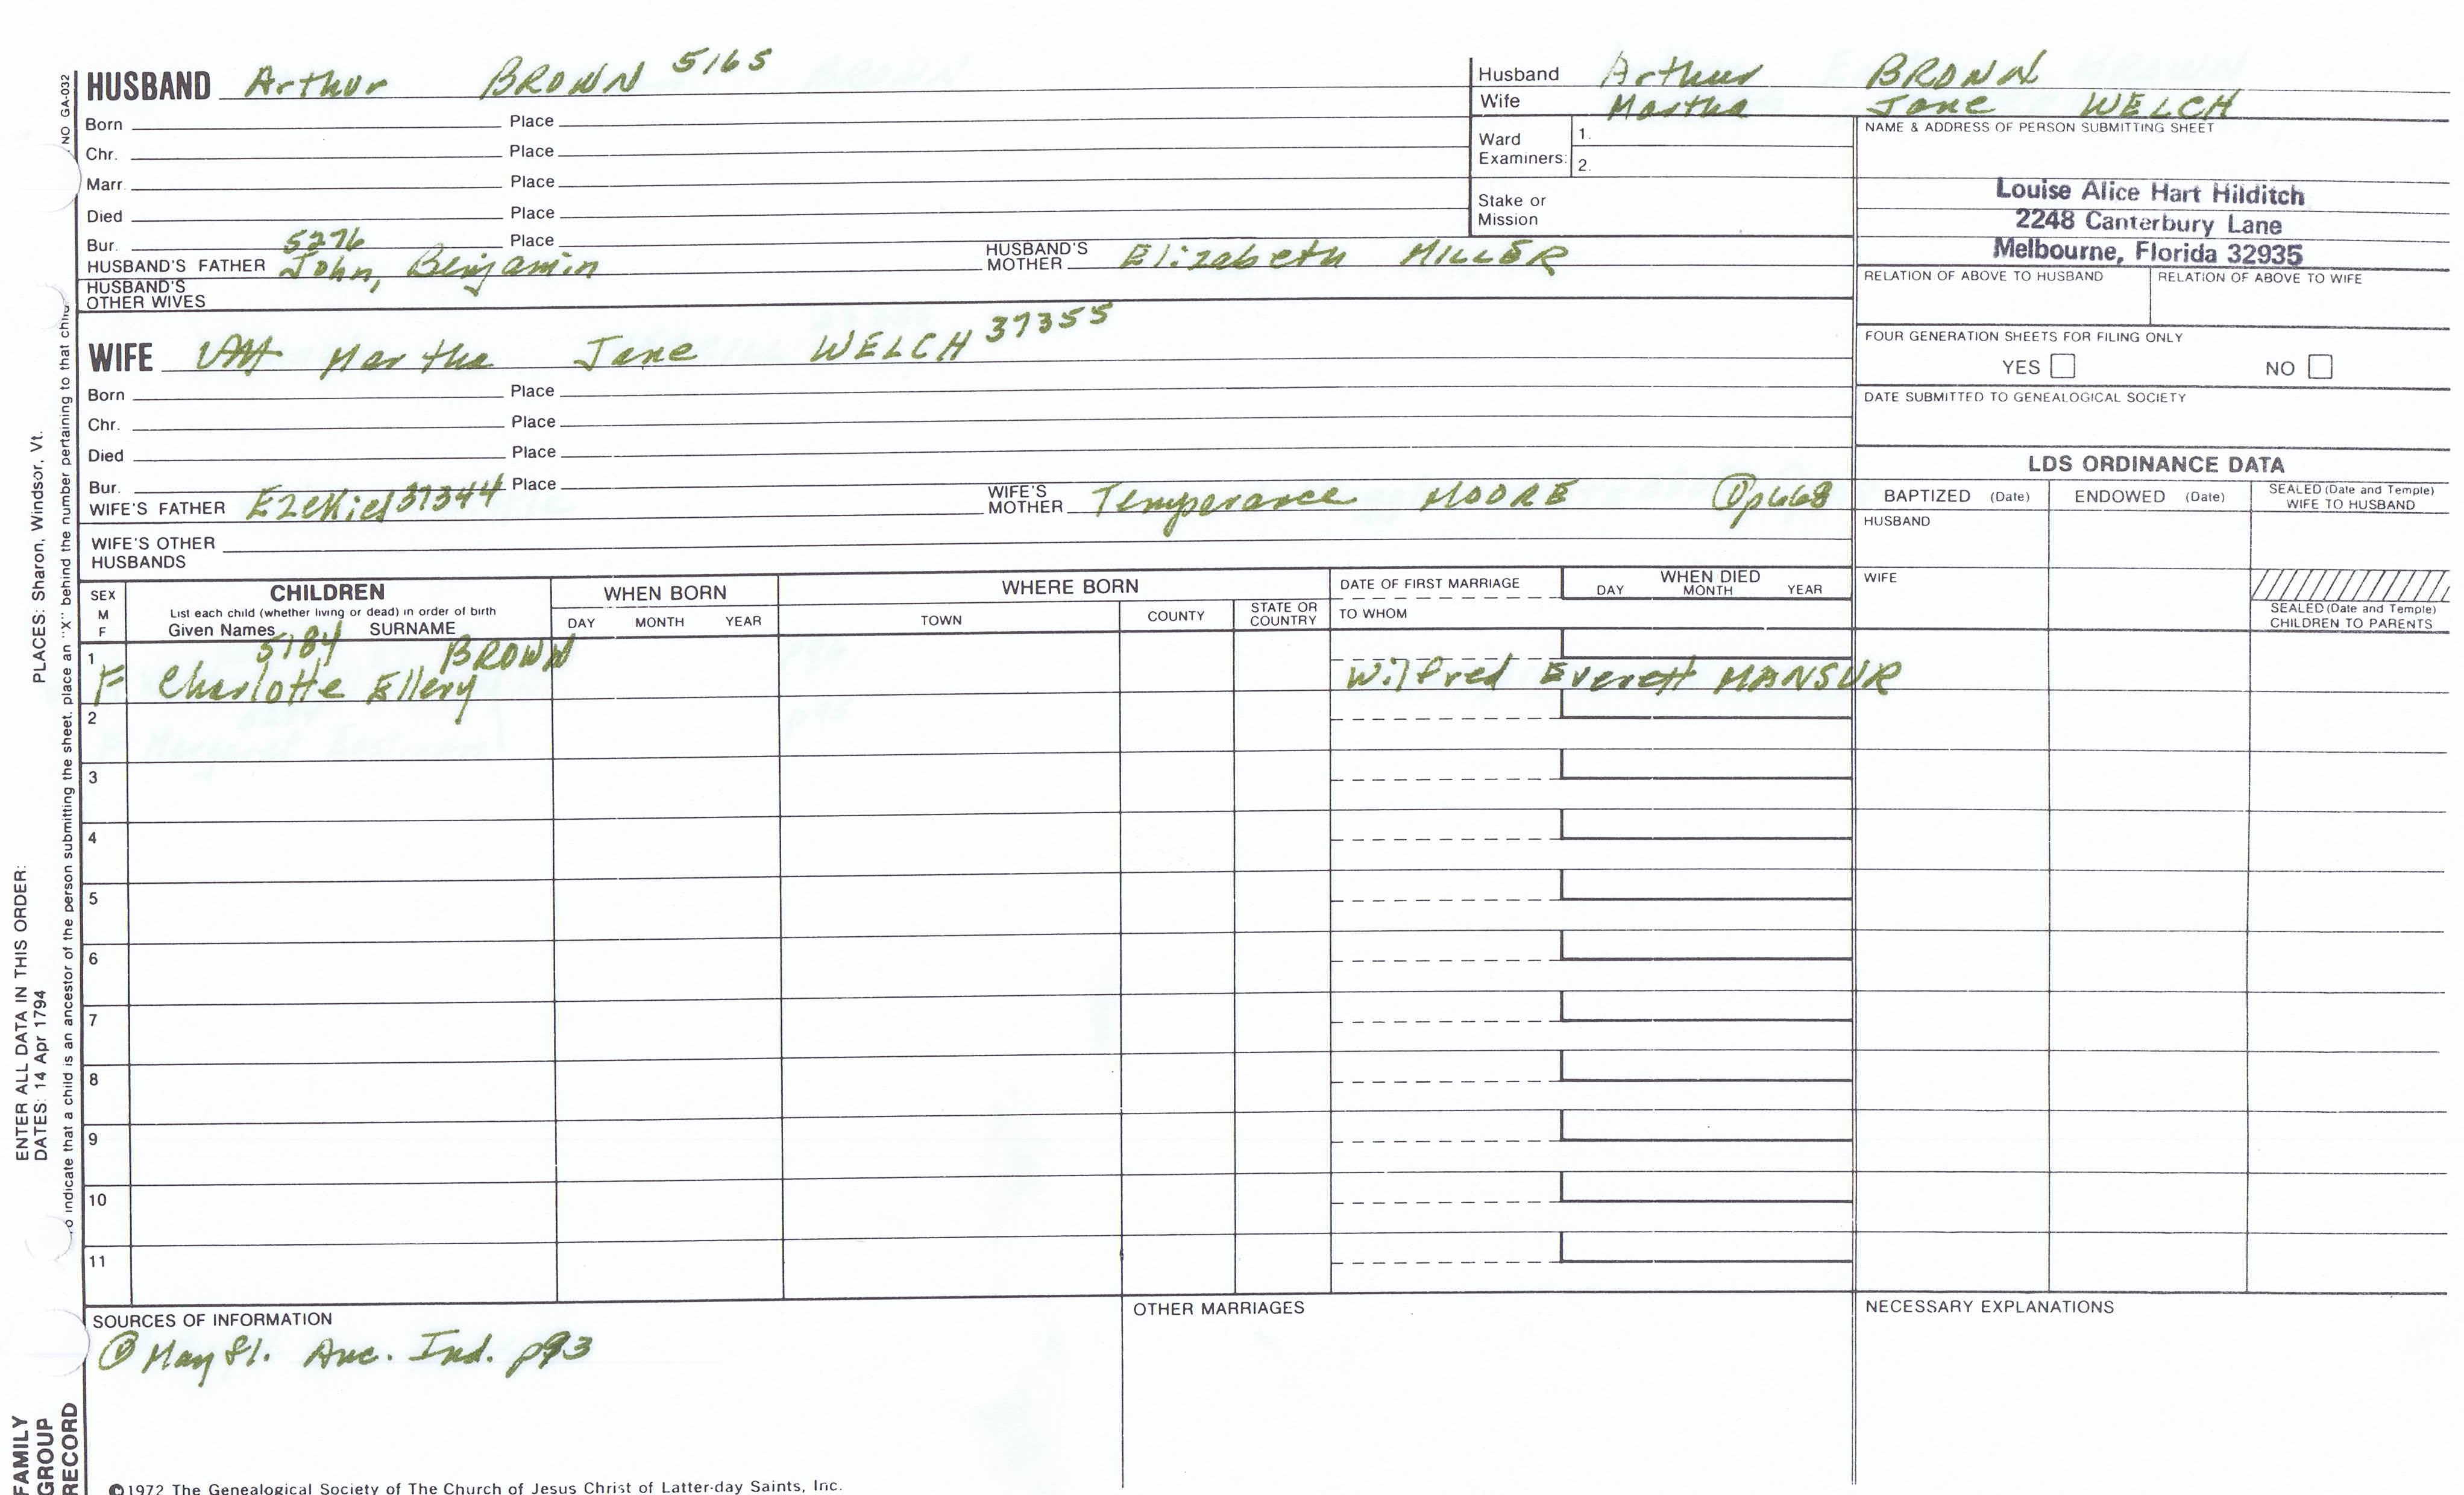 HUSBAND Arthur BROWN 5165
Born Place
Chr. Place
Marr. Place
Died Place
Bur. Place
5276
HUSBAND'S FATHER John, Benjamin HUSBAND'S MOTHER Elizabeth MILLER
HUSBAND'S OTHER WIVES
WIFE Martha Jane WELCH 37355
Born Place
Chr. Place
Died Place
Bur. Place
WIFE'S FATHER Ezekiel 37344 WIFE'S MOTHER Temperance MOORE p668
WIFE'S OTHER HUSBANDS
Husband Arthur BROWN
Wife Martha Jane WELCH
Ward Examiners: 1.
2.
Stake or Mission
NAME & ADDRESS OF PERSON SUBMITTING SHEET
Louise Alice Hart Hilditch
2248 Canterbury Lane
Melbourne, Florida 32935
RELATION OF ABOVE TO HUSBAND RELATION OF ABOVE TO WIFE
FOUR GENERATION SHEETS FOR FILING ONLY
YES NO
DATE SUBMITTED TO GENEALOGICAL SOCIETY
LDS ORDINANCE DATA
BAPTIZED (Date) ENDOWED (Date) SEALED (Date and Temple) WIFE TO HUSBAND
HUSBAND
WIFE
SEALED (Date and Temple) CHILDREN TO PARENTS
SEX M F CHILDREN WHEN BORN WHERE BORN DATE OF FIRST MARRIAGE WHEN DIED
List each child (whether living or dead) in order of birth
Given Names SURNAME DAY MONTH YEAR TOWN COUNTY STATE OR COUNTRY TO WHOM DAY MONTH YEAR
1 5184 BROWN
F Charlotte Ellery Wilfred Everett MANSUR
2
3
4
5
6
7
8
9
10
11
SOURCES OF INFORMATION OTHER MARRIAGES NECESSARY EXPLANATIONS
May 81. Anc. Ind. p93
©1972 The Genealogical Society of The Church of Jesus Christ of Latter-day Saints, Inc.
FAMILY GROUP RECORD
ENTER ALL DATA IN THIS ORDER:
DATES: 14 Apr 1794 PLACES: Sharon, Windsor, Vt.
indicate that a child is an ancestor of the person submitting the sheet, place an "X" behind the number pertaining to that child
NO GA-032